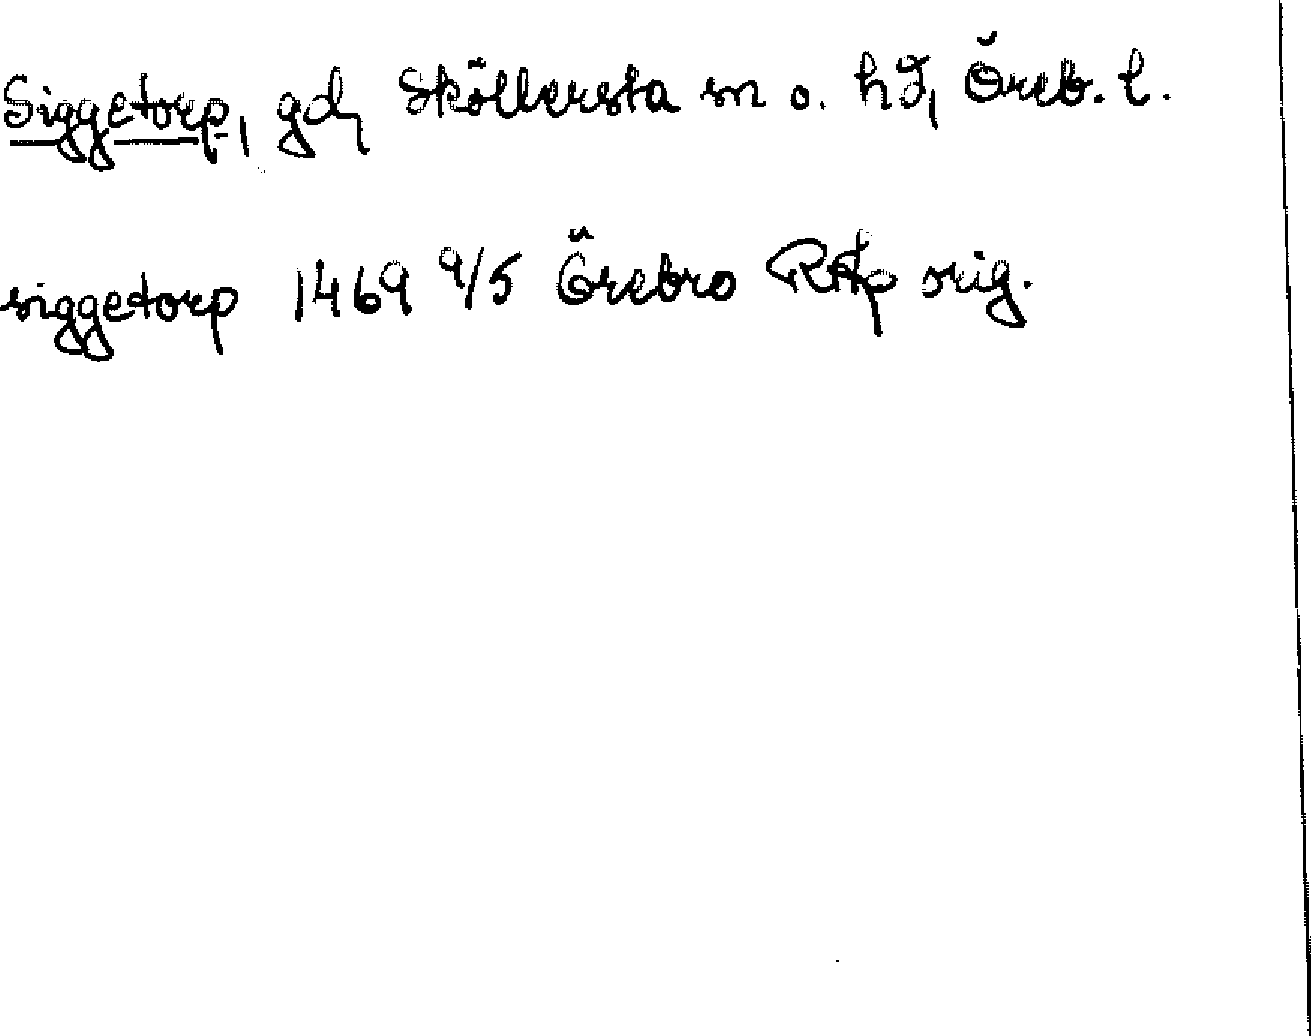 Siggetorp, gd, Sköllersta sn o. hd, Öreb. l.
siggetorp 1469 9/5 Örebro RAp orig.